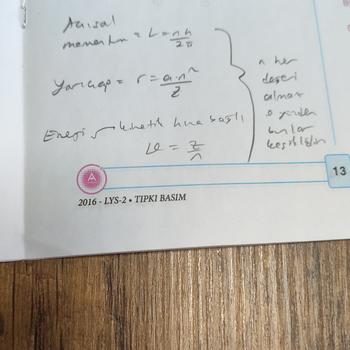 Açısal
momentum = L = nh/2π
Yarıçap = r = a.n²/Z
Enerji → kinetik hıza bağlı
v = Z/n
n her
değeri
almaz
o yüzden
bunlar
kesiklidir
A
13
2016 - LYS-2 • TIPKI BASIM